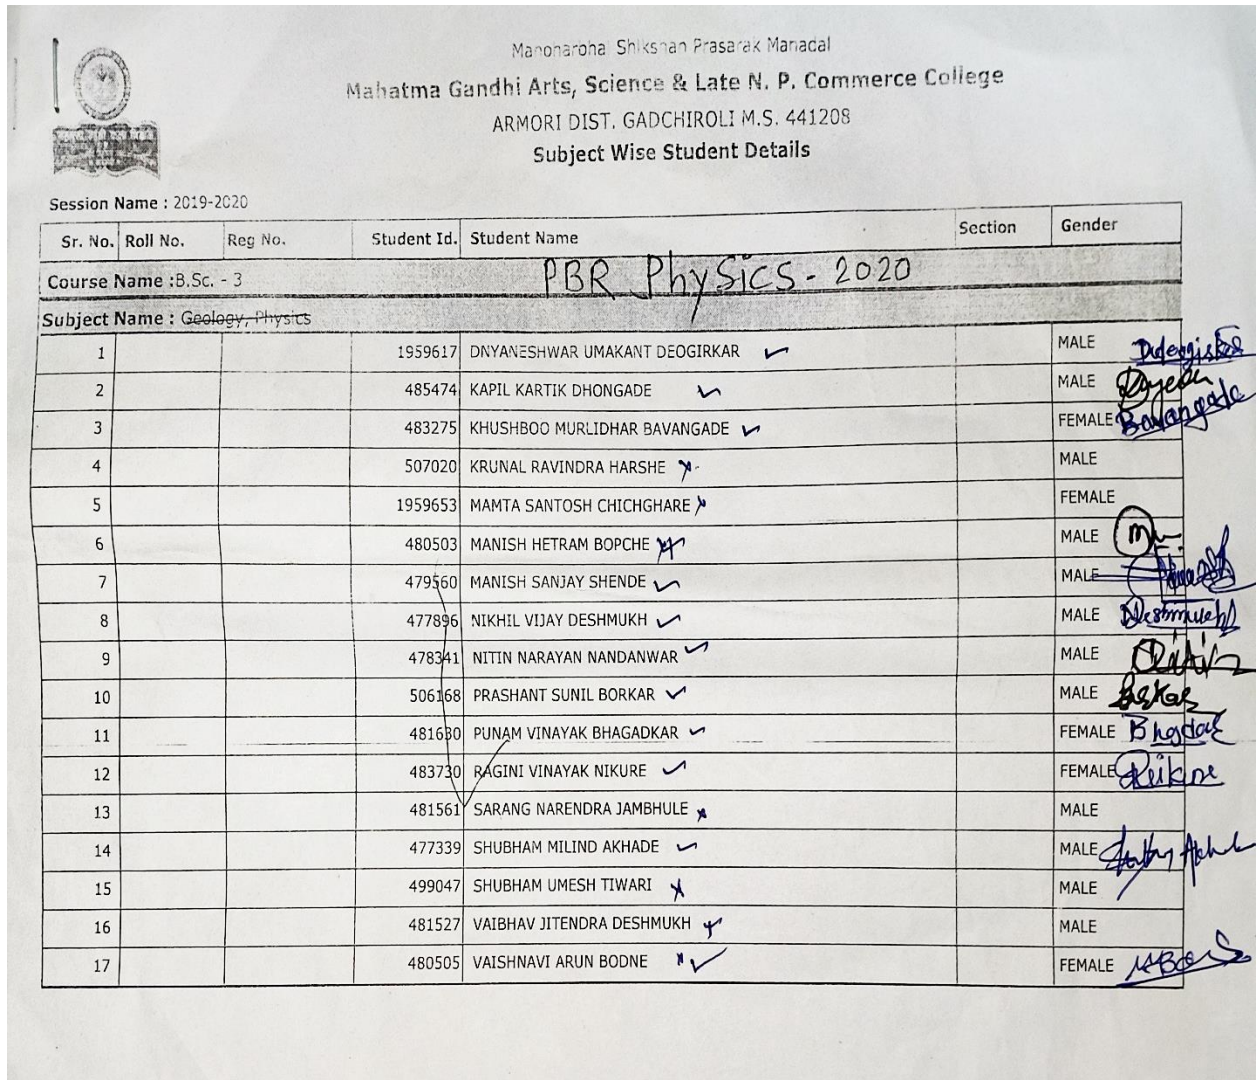 Manoharbhai Shikshan Prasarak Mandal
Mahatma Gandhi Arts, Science & Late N. P. Commerce College
ARMORI DIST. GADCHIROLI M.S. 441208
Subject Wise Student Details
Session Name : 2019-2020
Sr. No. Roll No. Reg No. Student Id. Student Name Section Gender
Course Name :B.Sc. - 3 PBR Physics - 2020
Subject Name : Geology, Physics
1 1959617 DNYANESHWAR UMAKANT DEOGIRKAR MALE
2 485474 KAPIL KARTIK DHONGADE MALE
3 483275 KHUSHBOO MURLIDHAR BAVANGADE FEMALE Bavangade
4 507020 KRUNAL RAVINDRA HARSHE MALE
5 1959653 MAMTA SANTOSH CHICHGHARE FEMALE
6 480503 MANISH HETRAM BOPCHE MALE
7 479560 MANISH SANJAY SHENDE MALE
8 477896 NIKHIL VIJAY DESHMUKH MALE Deshmukh
9 478341 NITIN NARAYAN NANDANWAR MALE
10 506168 PRASHANT SUNIL BORKAR MALE
11 481630 PUNAM VINAYAK BHAGADKAR FEMALE
12 483730 RAGINI VINAYAK NIKURE FEMALE
13 481561 SARANG NARENDRA JAMBHULE MALE
14 477339 SHUBHAM MILIND AKHADE MALE
15 499047 SHUBHAM UMESH TIWARI MALE
16 481527 VAIBHAV JITENDRA DESHMUKH MALE
17 480505 VAISHNAVI ARUN BODNE FEMALE